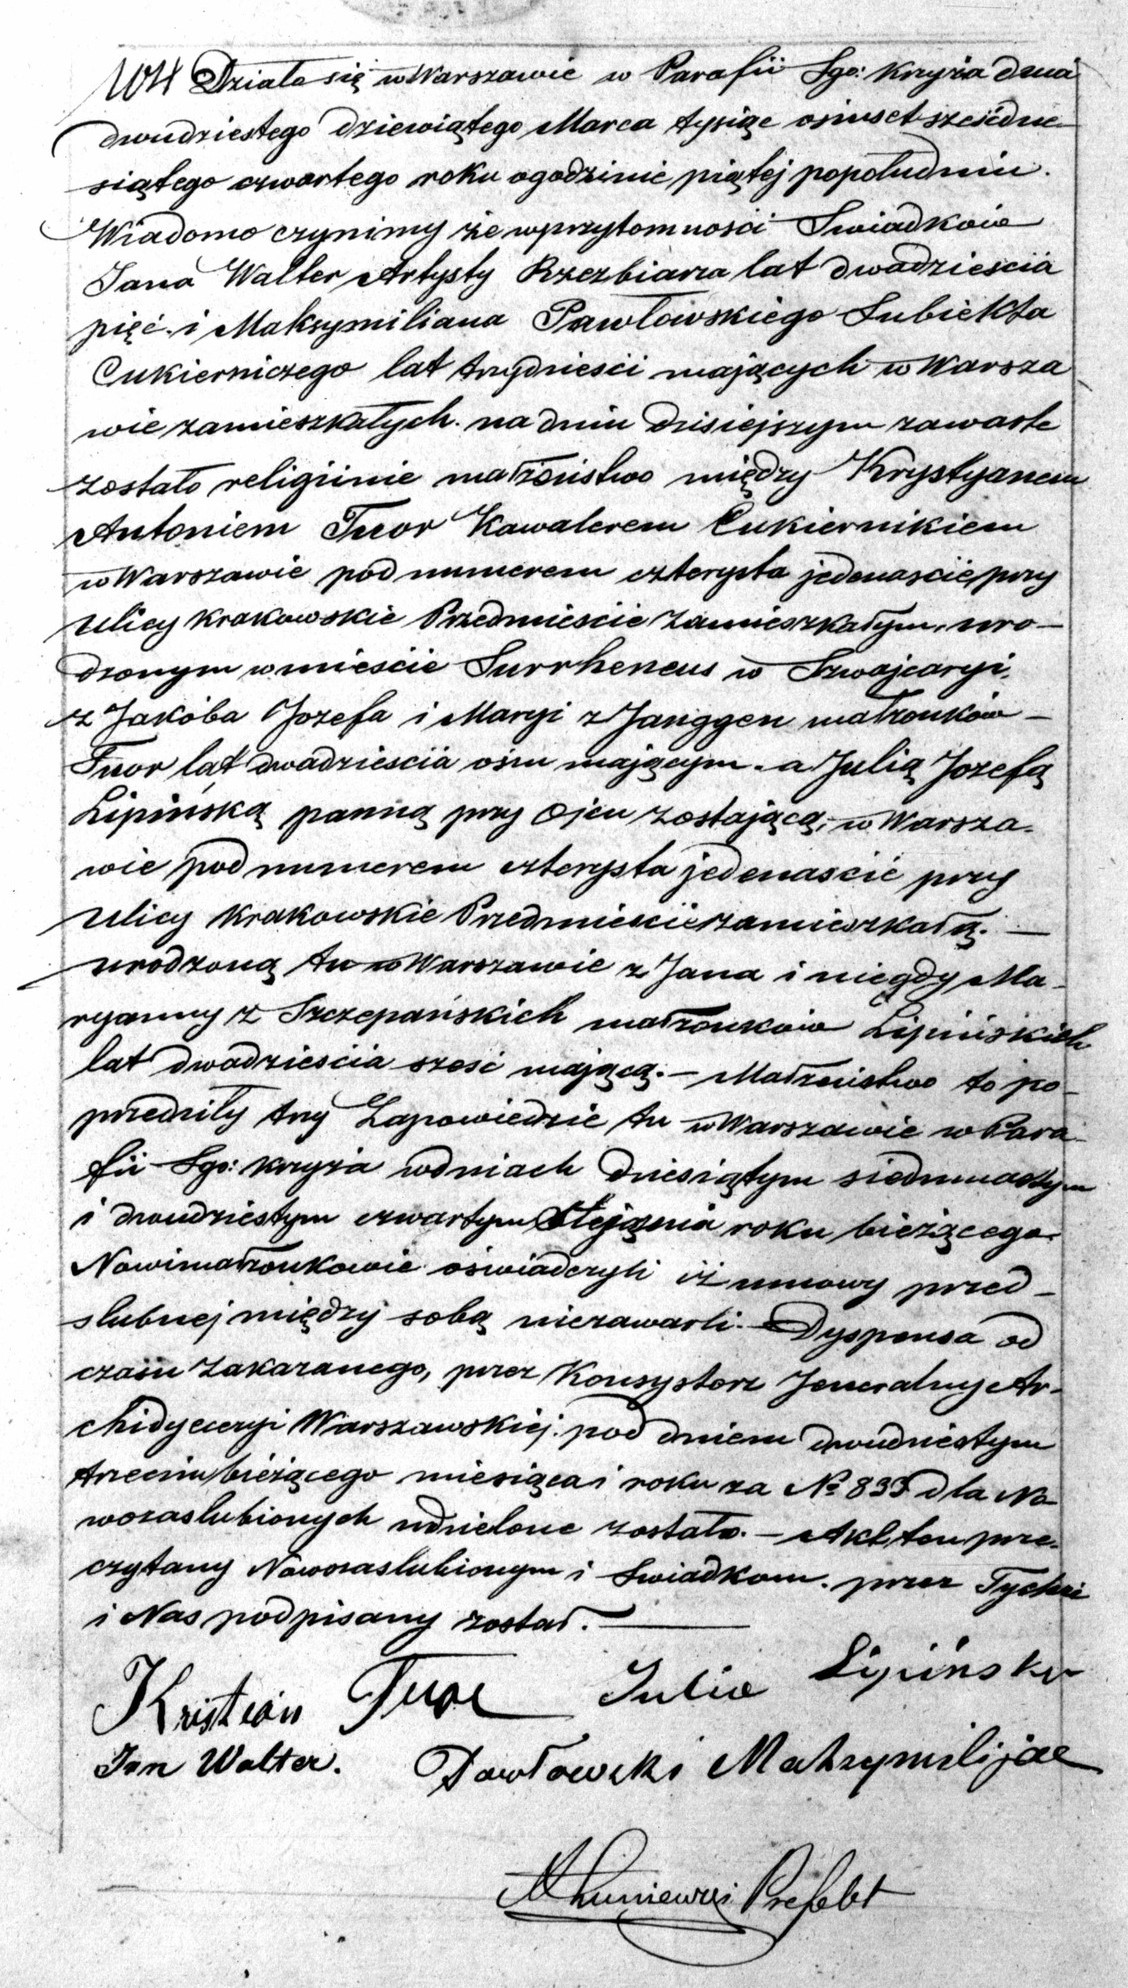 104 Działo się w Warszawie w Parafii Sgo: Krzyża dnia
dwudziestego dziewiątego Marca tysiąc ośmset sześćdzie-
siątego czwartego roku o godzinie piątej popołudniu.
Wiadomo czynimy że w przytomności Swiadków
Jana Walter Artysty Rzezbiarza lat dwadzieścia
pięć i Maksymiliana Pawłowskiego Subiekta
Cukierniczego lat trzydzieści mających w Warsza
wie zamieszkałych. na dniu dzisiejszym zawarte
zostało religiinie małżeństwo między Krystyanem
Antoniem Tuor Kawalerem Cukiernikiem
w Warszawie pod numerem czterysta jedenaście przy
Ulicy Krakowskie Przedmieście zamieszkałym, uro-
dzonym w mieście Surrheneus w Szwajcaryi,
z Jakóba Jozefa i Maryi z Janggen małżonków -
Tuor lat dwadzieścia ośm mającym. a Julią Jozefą
Lipińską panną przy Ojcu zostającą, w Warsza-
wie pod numerem czterysta jedenaście przy
Ulicy Krakowskie Przedmieście zamieszkałą. -
urodzoną tu w Warszawie z Jana i niegdy Ma-
ryanny z Szczepańskich małżonków Lipińskich
lat dwadzieścia sześć mającą. - Małżeństwo to po-
przedziły trzy Zapowiedzie tu w Warszawie w Para-
fii Sgo: Krzyża w dniach dziesiątym siedmnastym
i dwudziestym czwartym Stycznia roku bieżącego.
Nowimałżonkowie oświadczyli iż umowy przed-
slubnej między sobą niezawarli. - Dyspensa od
czasu zakazanego, przez Konsystorz Jeneralny Ar-
chidyecezyi Warszawskiej. pod dniem dwudziestym
trzecim bieżącego miesiąca i roku za № 899 dla No-
wozaslubionych udzielone zostało. - Akt ten prze-
czytany Nowozaslubionym i Swiadkom. przez Tychże
i Nas podpisany został. -
Kristian Tuor Julia Lipińska
Jan Walter. Pawłowski Maksymilijan
Prefekt